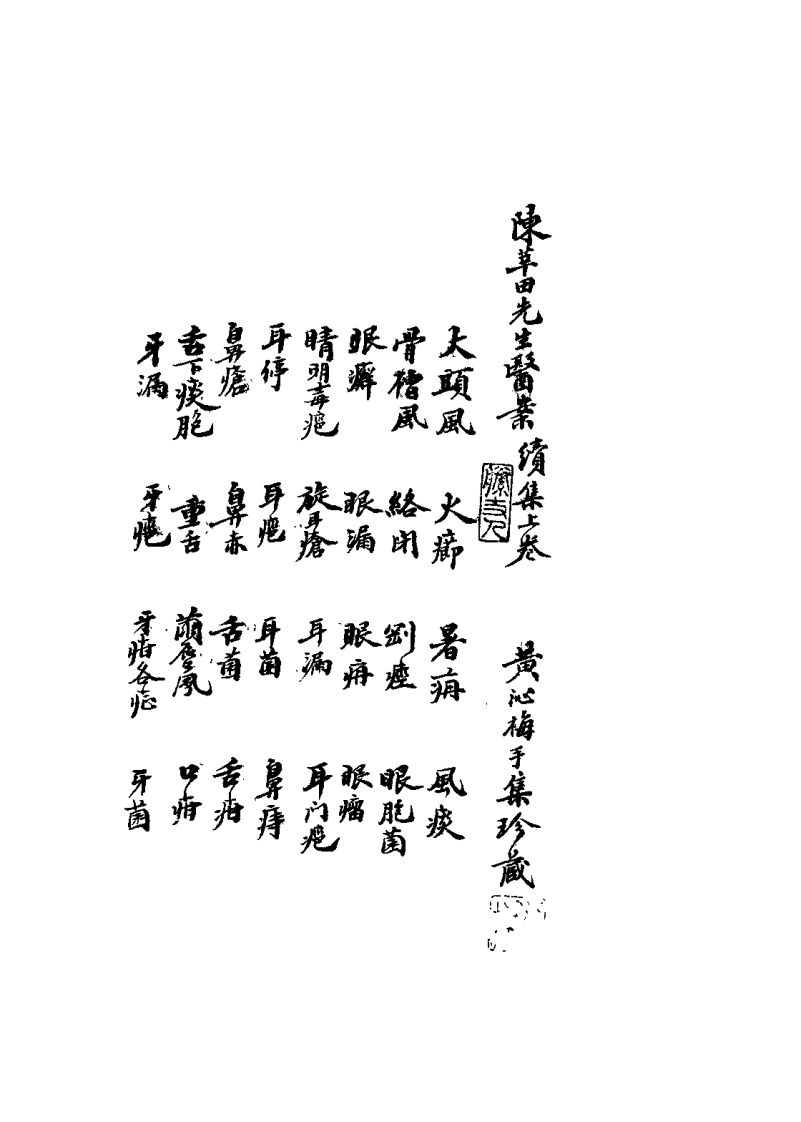 陳莘田先生醫案續集上卷 黃沁梅手集珍藏
大頭風 火癤 暑痈 風痰
骨槽風 絡閉 劉痙 眼胞菌
眼癬 眼漏 眼痈 眼瘤
睛明毒疤 旋耳瘡 耳漏 耳门疤
耳停 耳疤 耳菌 鼻痔
鼻瘡 鼻赤 舌菌 舌疳
舌下痰胞 重舌 繭唇風 口疳
牙漏 牙疤 牙疳各症 牙菌